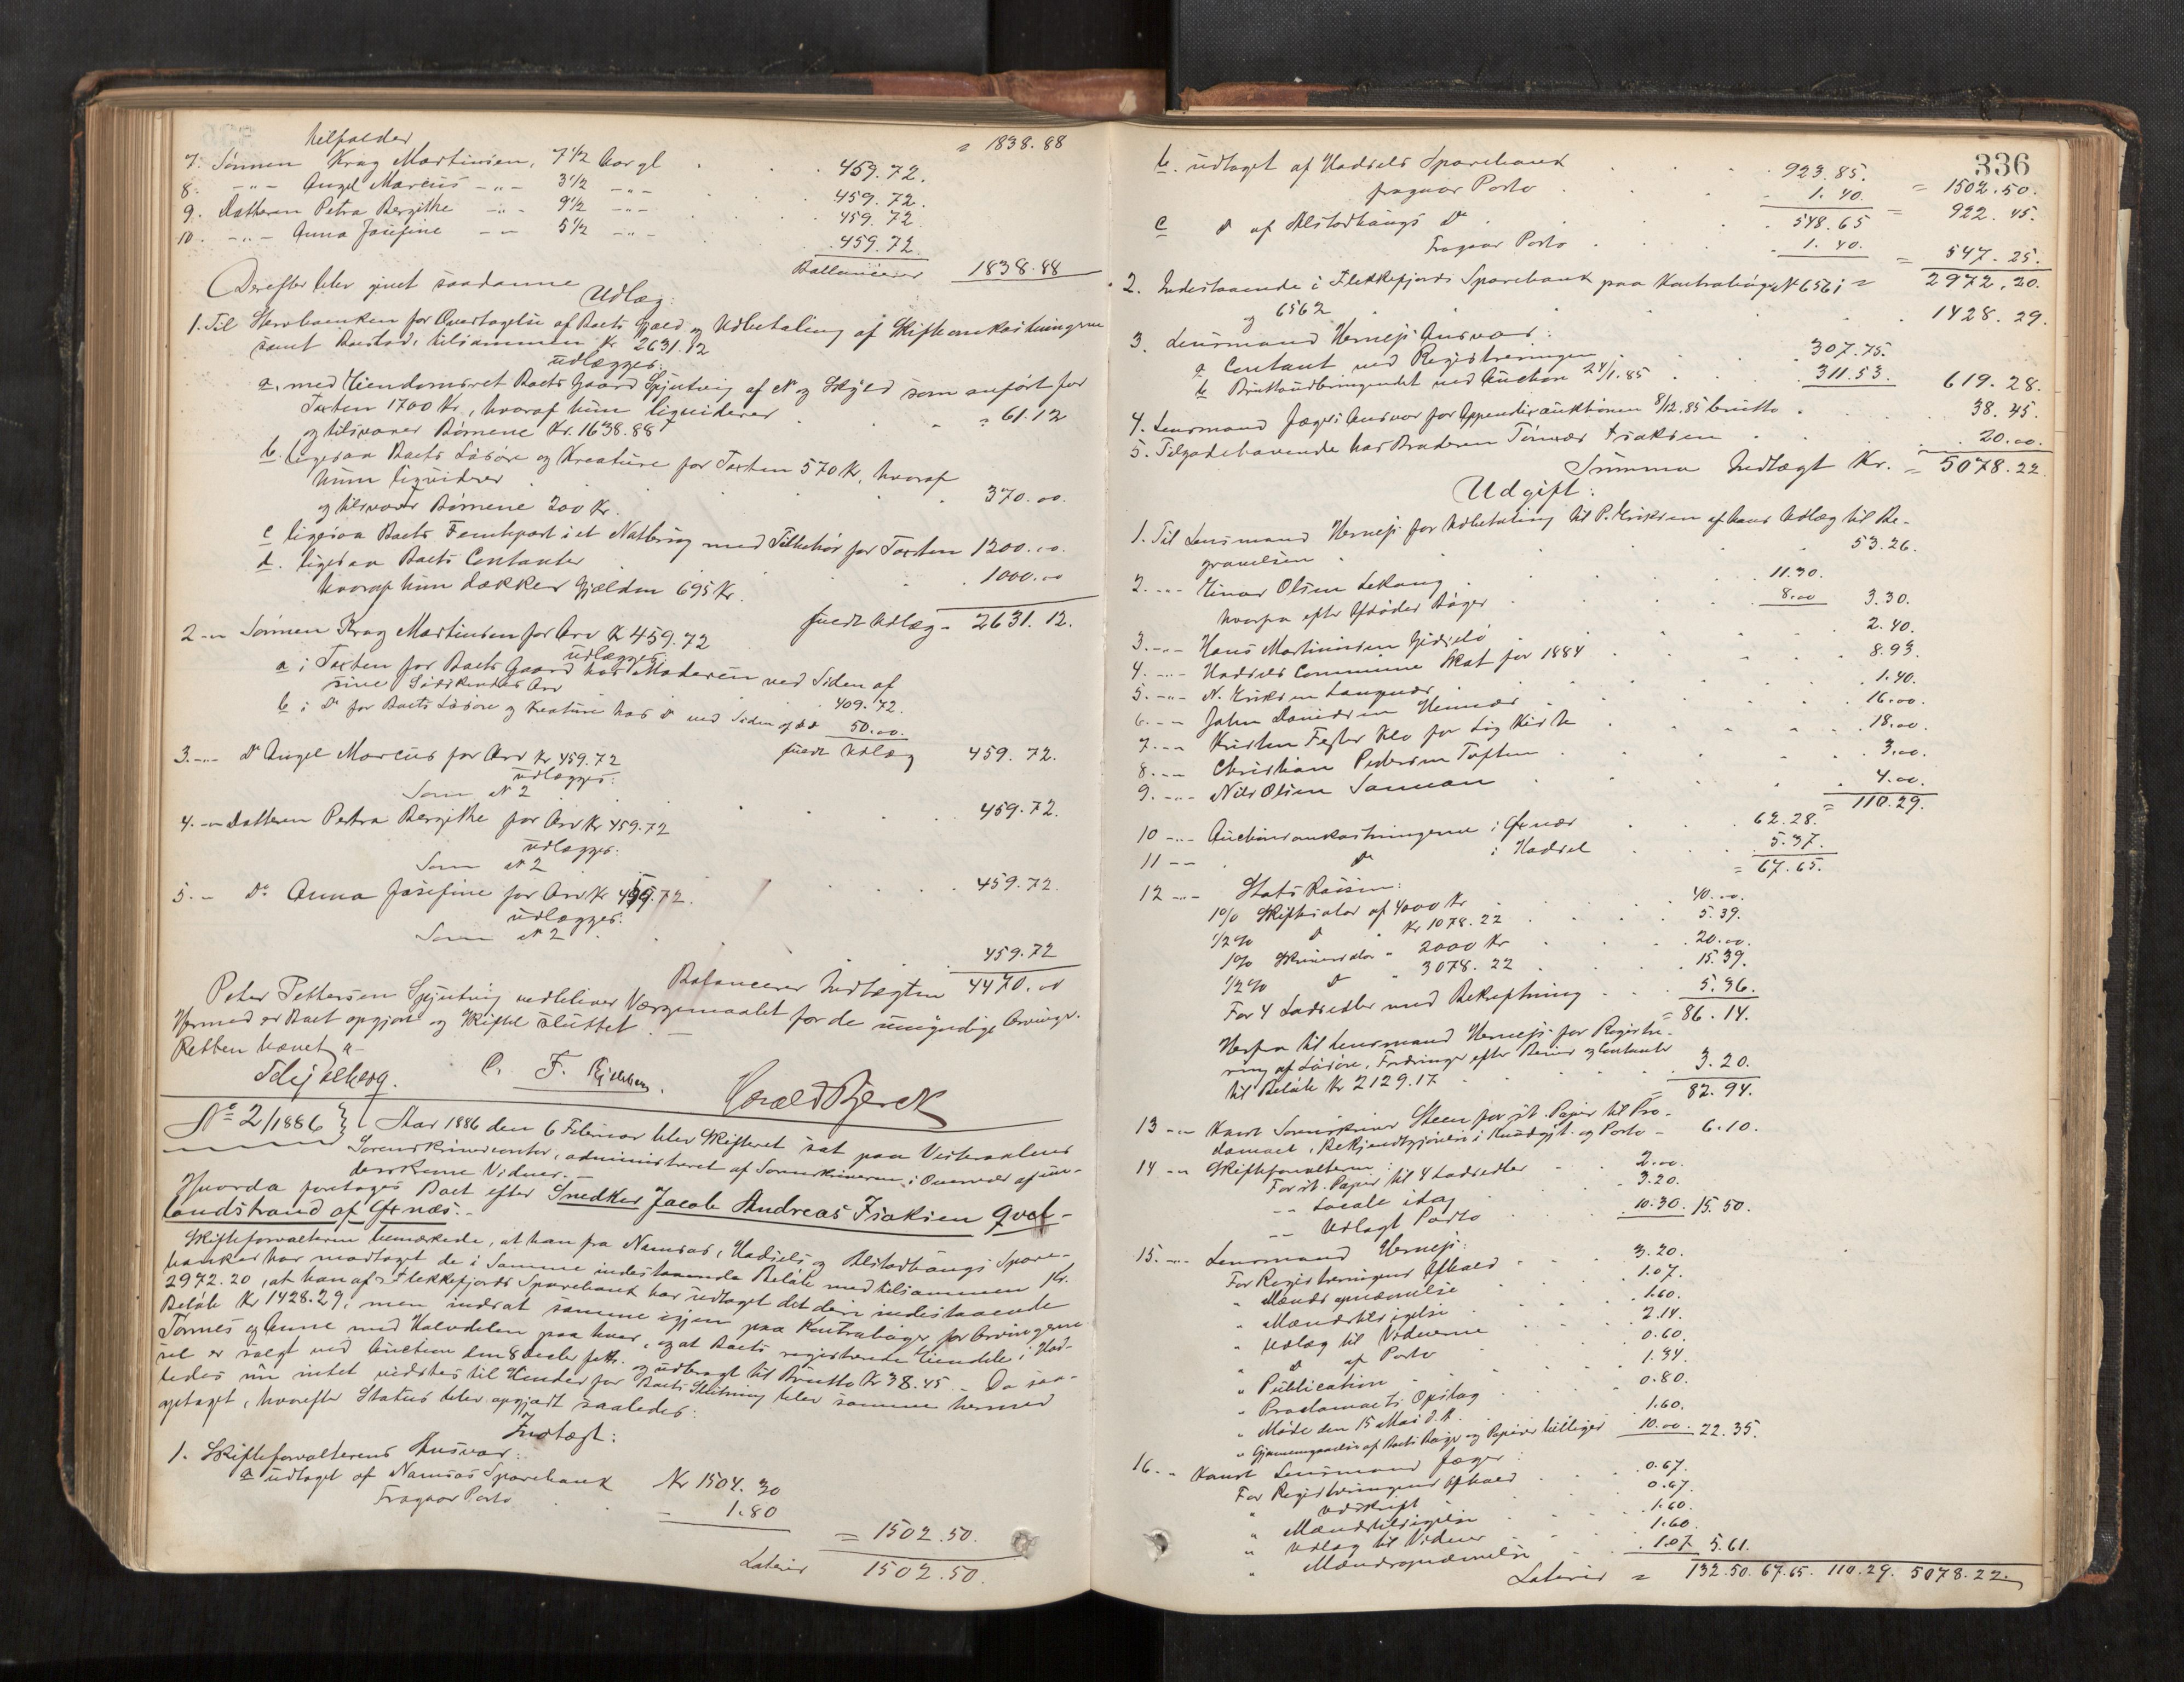 tilfalder = 1838.88
7. Sønnen Krag Martinsen, 7 1/2 Aar gl. 459.72.
8. -"- Angel Marcus -"- 3 1/2 -"- 459.72.
9. Datteren Petra Bergitte -"- 9 1/2 -"- 459.72
10. -"- Anna Josefine -"- 5 1/2 -"- 459.72
Ballancerer 1838.88
Derefter blev givet saadanne
Udlæg:
1. Til Stervboenken for Overtagelse af Boets Gjæld og Udbetaling af Skifteomkostningerne
samt Boeslod, tilsammen Kr 2631.12
udlægges:
a, med Eiendomsret Boets Gaard Spjutvig af N og Skyld som anført for
Taxten 1700 Kr., hvoraf hun liquiderer = 61.12
og tilsvarer Børnene Kr. 1638.88
b. ligesaa Boets Løsøre og Kreature for Taxten 570 Kr, hvoraf
hun liquiderer 370.00.
og tilsvarer Børnene 200 Kr.
c ligesaa Boets Femtepart i et Notbrug med Tilbehør for Taxten 1200.00.
d. ligesaa Boets Contanter 1000.00
hvoraf hun dækker Gjælden 695 Kr.
fuldt Udlæg = 2631.12.
2 -"- Sønnen Krag Martinsen for Arv Kr 459.72
udlægges
a i Taxten for Boets Gaard hos Moderen ved Siden af
sine Sødskendes Arv 409.72.
b i Do for Boets Løsøre og Kreature hos Do ved Siden af Do 50.00.
fuldt Udlæg 459.72.
3. -"- Do Angel Marcus for Arv Kr 459.72
udlægges:
Som N 2 459.72.
4. -"- Datteren Petra Bergitte for Arv Kr 459.72
udlægges:
Som N 2 459.72.
5. -"- Do Anna Josefine for Arv Kr 459.72.
udlægges:
Som N 2 459.72
Balancerer Indtægten 4470.00
Peter Pettersen Spjutvig vedbliver Værgemaalet for de umyndige Arvinger.
Hermed er Boet opgjort og Skiftet sluttet.
Retten hævet
C. F.
Harald Bjerck
No 2/1886 } Aar 1886 den 6 Februar blev Skifteret sat paa Vesteraalens
Sorenskrivercontor, administreret af Sorenskriveren, i Overvær af un-
derskrevne Vidner.
Hvorda foretages Boet efter Snedker Jacob Andreas Isaksen Qval-
landstrand af Øxnæs.-
Skifteforvalteren bemærkede, at han fra Namsos, Hadsels og Alstadhaugs Spare-
banker har modtaget de i Samme indestaaende Beløb med tilsammen Kr.
2972.20, at han af Flekkefjords Sparebank har udtaget det deri indestaaende
Beløb Kr 1428.29, men indsat samme igjen paa Kontrabøger for Arvingerne
Tønnes og Anne med Halvdelen paa hver, og at Boets registrerede Eiendele i Had-
sel er solgt ved Auction den 8 Decbr f. A. og udbragt til Brutto Kr 38.45.- Da saa-
ledes nu intet vidstes til Hinder for Boets Slutning blev samme hermed
optaget, hvorefter Status blev opgjort saaledes:
Indtægt:
1. Skifteforvalterens Ansvar:
a udtaget af Namsos Sparebank Kr 1504.30
Fragaar Porto 1.80
= 1502.50.
Lateris 1502.50.
336
= 1502.50.
b. udtaget af Hadsels Sparebank 923.85.
fragaar Porto 1.40 = 922.45.
c Do af Alstadhaugs Do 548.65
Fragaar Porto 1.40. = 547.25.
2972.20.
2. Indestaaende i Flekkefjords Sparebank paa Kontrabøger N 6561 =
og 6562 1428.29.
3. Lensmand Hernejs Ansvar:
a Contant ved Registreringen 307.75.
b Bruttoudbringendet ved Auction 24/1.85 311.53. 619.28.
4. Lensmand Jægers Ansvar for Appendixauktionen 8/12.85 brutto 38.45.
5. Tilgodehavende hos Broderen Tønnes Isaksen 20.00.
Summa Indtægt Kr. = 5078.22.
Udgift:
1. Til Lensmand Hernejs for Udbetaling til P. Eriksen af hans Udlæg til Be-
gravelsen 53.26.
2. -"- Einar Olsen Lekang 11.30.
hvorfra efter Afdødes Bøger 8.00 3.30.
3. -"- Hans Martinussen 2.40.
4. -"- Hadsels Commune Skat for 1884 8.93.
5. -"- N. Eriksen Langenæs 1.40.
6. -"- John Danielsen 16.00.
7. -"- Kristen for Lig Kiste 18.00
8. -"- Christian Pedersen Toften 3.00.
9. -"- Nils Olsen 4.00.
= 110.29.
10 -"- Auctionsomkostningerne i Øxnæs 62.28.
11 -"- Do i Hadsel 5.37.
= 67.65.
12 -"- Stats Kassen:
1 % Skiftesalær af 4000 Kr 40.00.
1/2 % Do Kr 1078.22 5.39.
1 % Skriversalær " 2000 Kr 20.00.
1/2 % Do " 3078.22 15.39.
For 4 Lodsedler med Bekræftning 5.36.
= 86.14.
Herfra til Lensmand Hernejs for Registre-
ring af Løsøre, Fordringer efter Bevis og Contanter
til Beløb Kr 2129.17 3.20.
82.94.
13 -"- Const Sorenskriver Steen for st. Papir til Pro-
clamaet, Bekjendtgjørelse i Kundgjt. og Porto 6.10.
14 -"- Skifteforvalteren:
For st. Papir til 4 Lodsedler 2.00.
-"- Locale idag 3.20.
-"- Udlagt Porto 10.30. 15.50.
15. -"- Lensmand Hernejs:
For Registreringens Afhold 3.20.
" Mænds opnævnelse 1.07.
" Mændstilsigelse 1.60.
" Udlæg til Vidnerne 2.14.
" Do af Porto 0.60.
" Publication 1.34.
" Proclamaets Opslag 0.80.
" Møde den 15 Mai d. A. 1.60.
" Gjennemgaaelse af Boets Bøger og Papirer billigst 10.00. 22.35.
16. " Const Lensmand Jæger:
For Registreringens Afhold 0.67.
" Udskrift 0.67.
" Mændstilsigelse 1.60.
" Udlæg til Vidner 1.60.
" Mændsopnævnelse 1.07 5.61.
Lateris = 132.50. 67.65. 110.29. 5078.22.